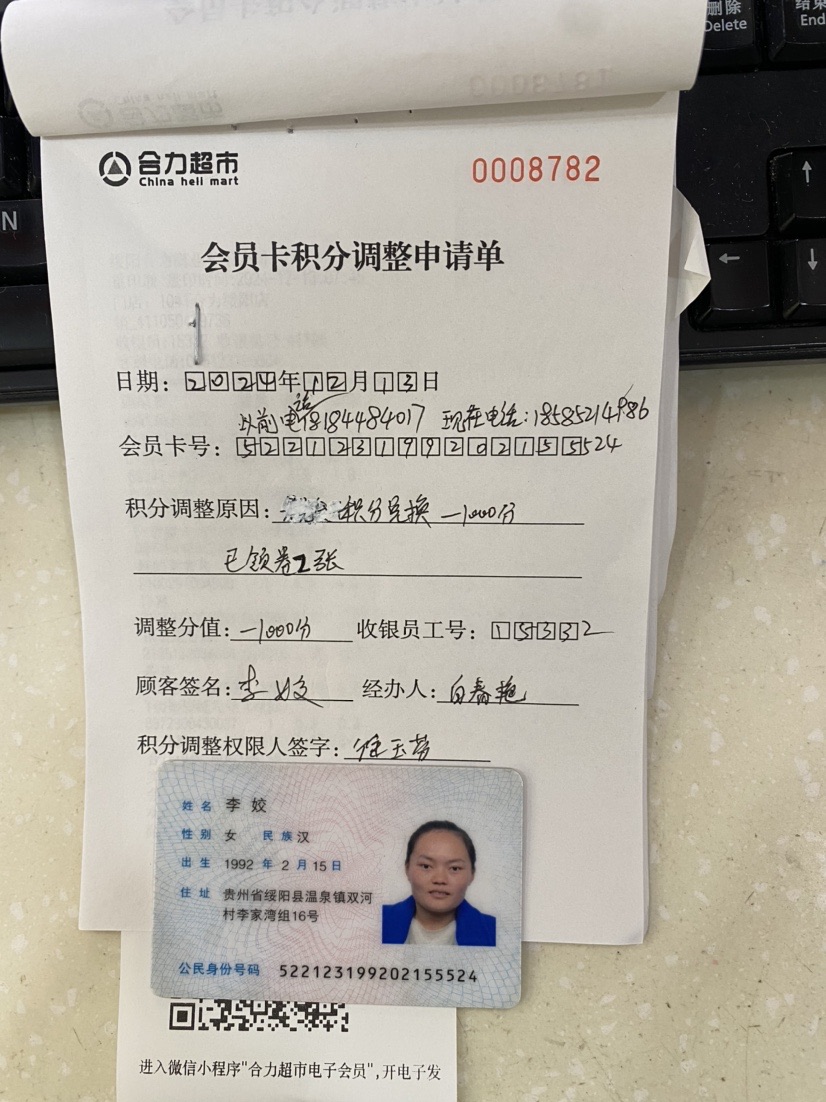 删除
Delete
结束
End
N
合力超市
China heli mart
0008782
会员卡积分调整申请单
日期：2024年12月13日
以前电话18184484017 现在电话：18585214986
会员卡号：522123199202155524
积分调整原因：积分兑换 -1000分
已领卷2张
调整分值：-1000分 收银员工号：15332
顾客签名：李姣 经办人：白春艳
积分调整权限人签字：
姓名 李姣
性别 女 民族 汉
出生 1992 年 2 月 15 日
住址 贵州省绥阳县温泉镇双河
村李家湾组16号
公民身份号码 522123199202155524
进入微信小程序"合力超市电子会员",开电子发